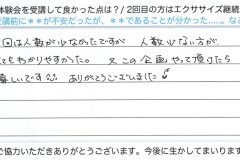 体験会を受講して良かった点は？/ 2回目の方はエクササイズ継続
受講前に＊＊が不安だったが、＊＊であることが分かった……。な
回は人数が少なかたですが 人数少ない方が
てもわかりやすかった。又この企画やって頂けたら
嬉しいです ありがとうございました
ご協力いただきありがとうございます。今後に生かしてまいります